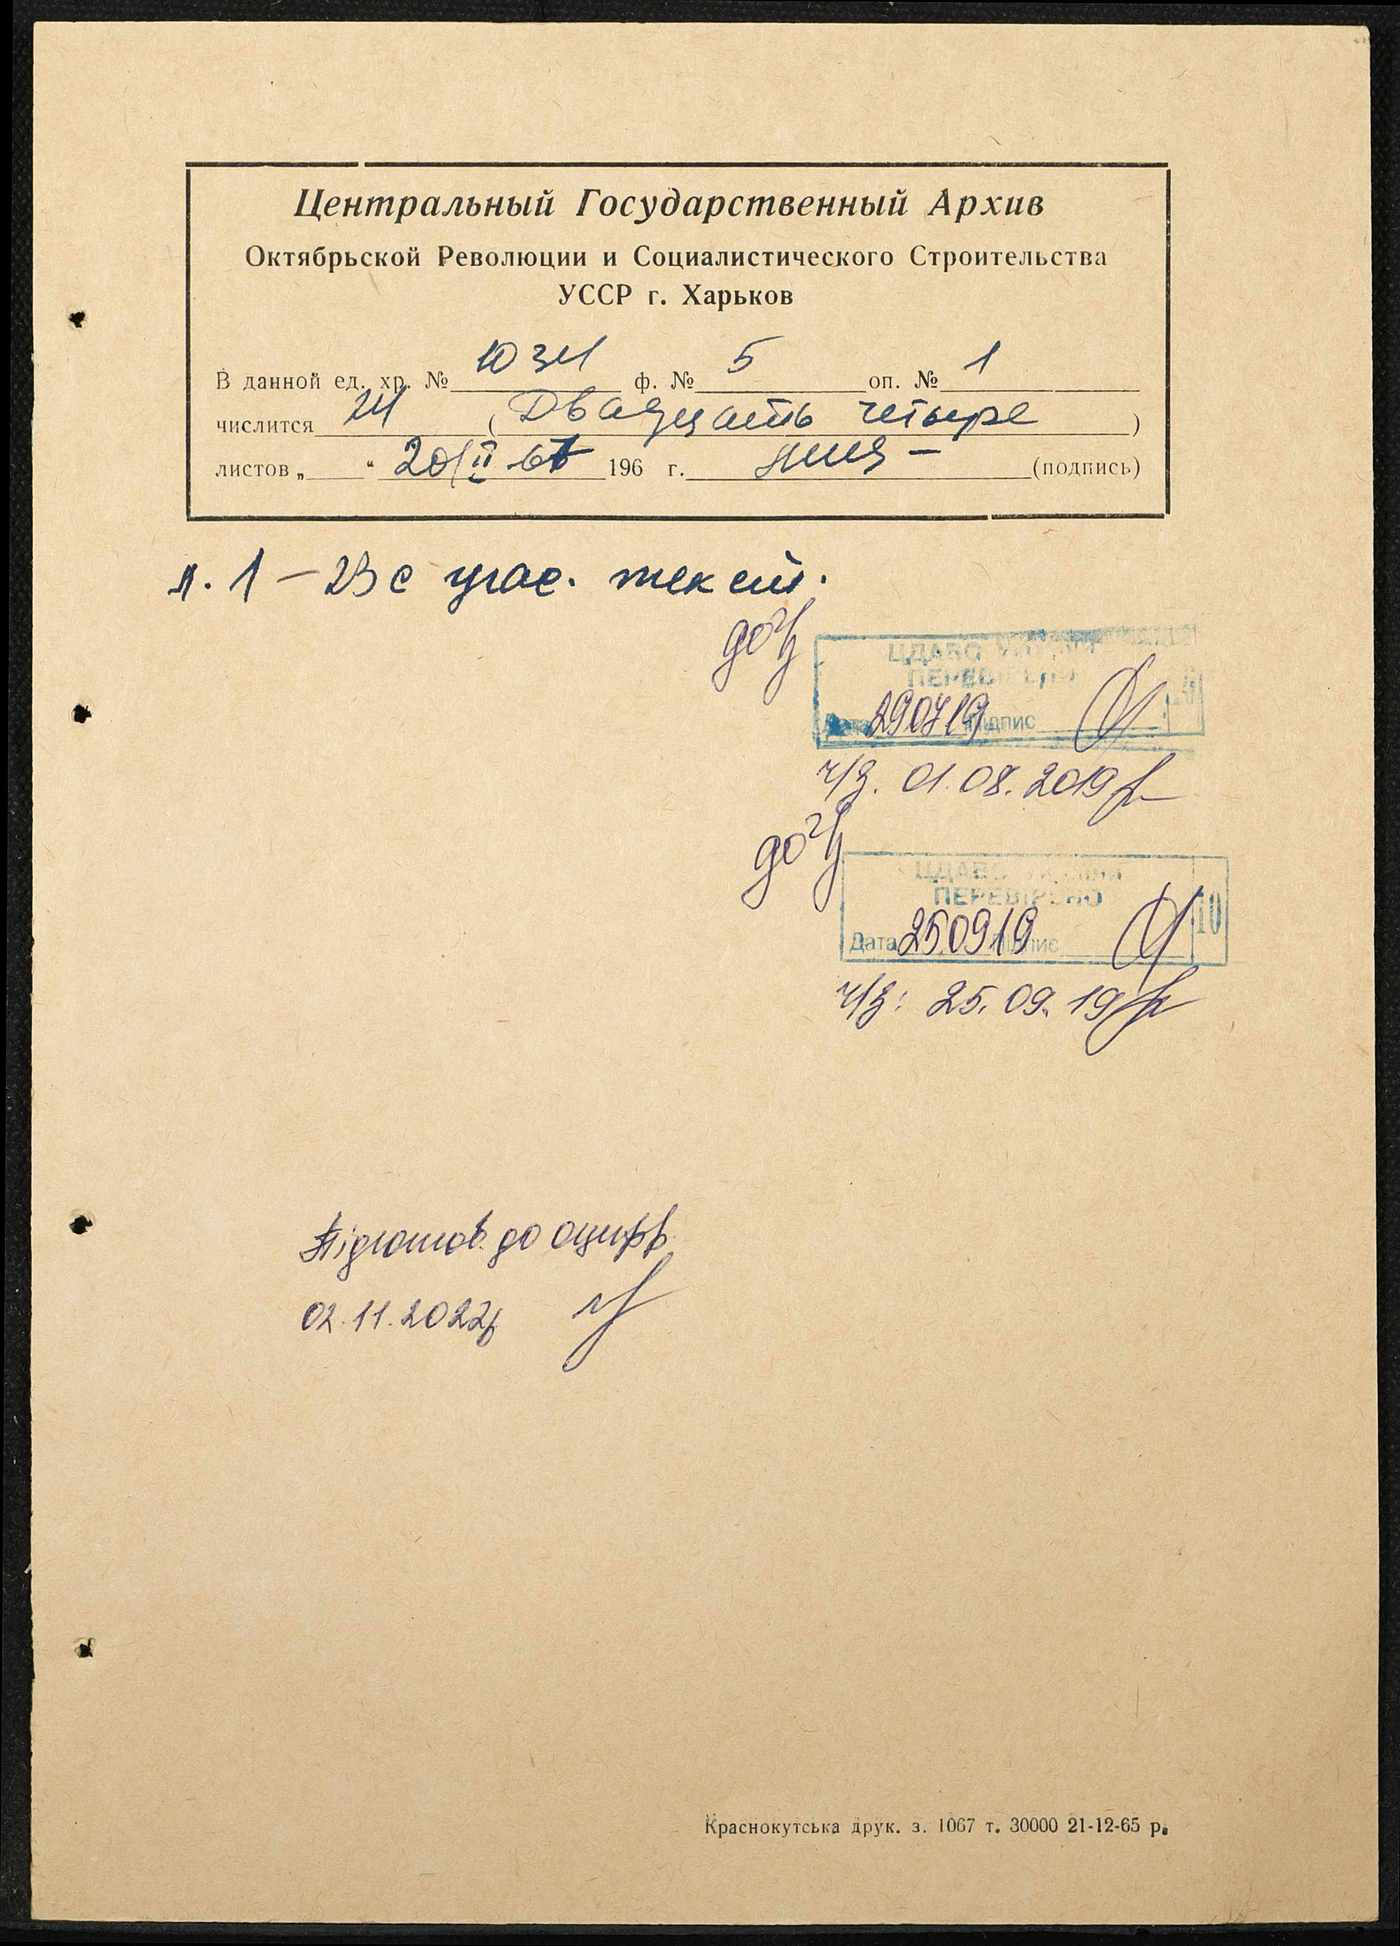 Центральный Государственный Архив
Октябрьской Революции и Социалистического Строительства
УССР г. Харьков
В данной ед. хр. № 1034 ф. № 5 оп. № 1
числится 24 (Двадцать четыре)
листов „ “ 20/II 196 г. (подпись)
л. 1 – 23 с угас. текст.
до ч/з
ЦДАВО України
ПЕРЕВІРЕНО
Дата 290719 Підпис
ч/з. 01.08.2019
до ч/з
ЦДАВО України
ПЕРЕВІРЕНО 10
Дата 250919 Підпис
ч/з: 25.09.19
Підготов. до оцифр.
02.11.2022р
Краснокутська друк. з. 1067 т. 30000 21-12-65 р.